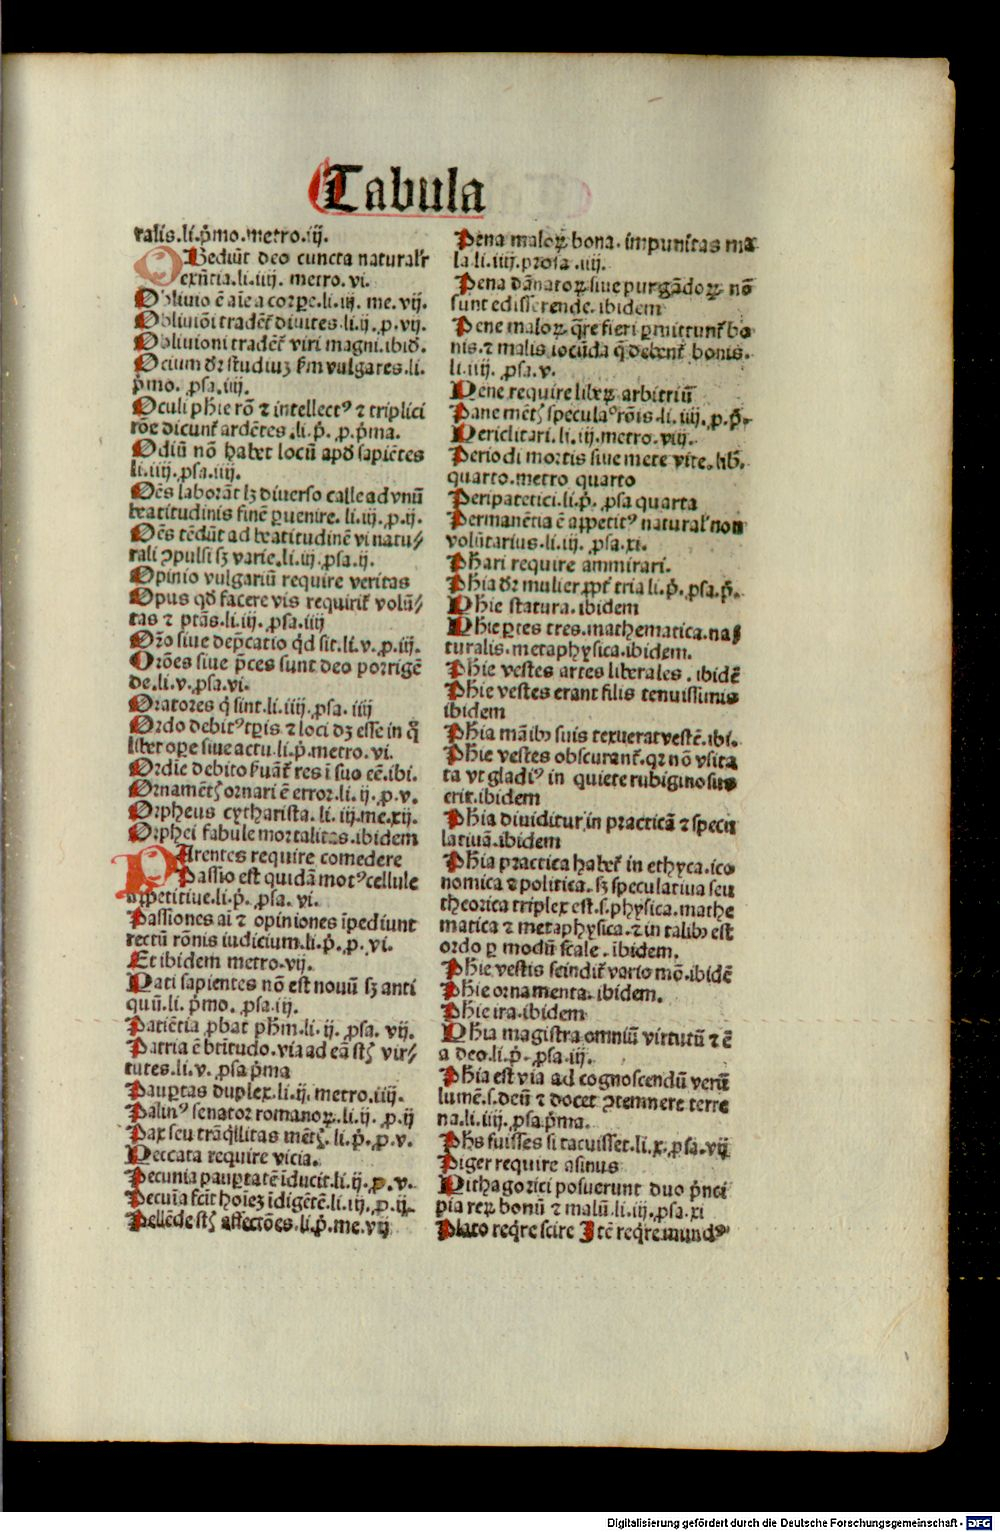 Tabula
ralis.li.p̄mo.metro.iij.
OBediūt deo cuncta naturalr̄
exn̄tia.li.iiij. metro.vi.
Obliuio ē aīe a corpe.li.iij. me.vij.
Obliuiōi tradēt̄ diuites.li.ij.p.vij.
Obliuioni tradēt̄ viri magni.ibid̄.
Ocium dr̄ studiuȝ km̄ vulgares.li.
p̄mo. ꝓsa.iiij.
Oculi phīe rō ⁊ intellectꝰ ⁊ triplici
rōe dicunt̄ ardētes.li.p̄. p.p̄ma.
Odiū nō habet locū apd̄ sapiētes
li.iiij.ꝓsa.iiij.
Oēs laborāt lȝ diuerso calle ad vnū
beatitudinis finē ꝑuenire. li.iij.p.ij.
Oēs tēdūt ad beatitudinē vi natu⸗
rali ꝯpulsi sȝ varie.li.iij.ꝓsa.ij.
Opinio vulgariū require veritas
Opus qd̄ facere vis requirit̄ volū⸗
tas ⁊ ptās.li.iij.ꝓsa.iiij
Or̄o siue dep̄catio qd̄ sit.li.v.p.iij.
Orōes siue p̄ces sunt deo porrigē
de.li.v.ꝓsa.vi.
Oratores q̄ sint.li.iiij.ꝓsa.iiij
Ordo debitꝰ tꝑis ⁊ loci dȝ esse in q̄
libet oꝑe siue actu.li.p̄.metro.vi.
Ordīe debito ẜuāt̄ res ī suo eē.ibi.
Ornamētꝭ ornari ē error.li.ij.p.v.
Orpheus cytharista.li.iij.me.xij.
Orphei fabule mortalitas.ibidem
PArentes require comedere
Passio est quidā motꝰ cellule
appetitiue.li.p̄.ꝓsa.vi.
Passiones aī ⁊ opiniones īpediunt
rectū rōnis iudicium.li.p̄.p.vi.
Et ibidem metro.vij.
Pati sapientes nō est nouū sȝ anti
quū.li.p̄mo.ꝓsa.iij.
Patiētia ꝓbat phm̄.li.ij.ꝓsa.vij.
Patria ē btītudo.via ad eā st̄ꝭ vir⸗
tutes.li.v.ꝓsa p̄ma
Pauꝑtas duplex.li.ij.metro.iiij.
Palinꝰ senator romanoꝝ.li.ij.p.ij
Pax seu trāq̄llitas mētꝭ.li.p̄.p.v.
Peccata require vicia.
Pecunia pauꝑtatē īducit.li.ij.p.v.
Pecuīa fcit hoīeȝ īdigētē.li.iij.p.ij.
Pellēde st̄ꝭ affectōes.li.p̄.me.vij
Pena maloꝝ bona.impunitas ma
la li.iiij.prosa.iiij.
Pena dānatoꝝ siue purgādoꝝ nō
sunt edisserende.ibidem
Pene maloꝝ q̄re fieri ꝑmittunt̄ bo
nis.⁊ malis iocūda q̄ debent̄ bonis.
li.iiij.ꝓsa.v.
Pene require libeꝝ arbitriū
Pane mētꝭ speculaꝰ rōis.li.iiij.p.p̄.
Periclitari.li.iij.metro.viij.
Periodi mortis siue mete vite.lib̄.
quarto.metro quarto
Peripatetici.li.p̄.ꝓsa quarta
Permanētia ē appetitꝰ natural̄ non
volūtarius.li.iij.ꝓsa.xi.
Phari require ammirari.
Phīa dr̄ mulier ꝓpt̄ tria li.p̄.ꝓsa.p̄.
Phīe statura.ibidem
Phīe ꝑtes tres.mathematica.na⸗
turalis.metaphysica.ibidem.
Phīe vestes artes liberales.ibidē
Phīe vestes erant filis tenuissimis
ibidem
Phīa māibꝰ suis texuerat vestē.ibi.
Phīe vestes obscurant̄.qꝛ nō vsita
ta vt gladiꝰ in quiete rubiginosus
erit.ibidem
Phīa diuiditur in practicā ⁊ specu
latiuā.ibidem
Phīa practica habet̄ in ethyca.ico
nomica ⁊ politica.sȝ speculatiua seu
theorica triplex est.s.physica.mathe
matica ⁊ metaphysica.⁊ in talibꝰ est
ordo ꝑ modū scale.ibidem.
Phīe vestis scindit̄ vario mō.ibidē
Phīe ornamenta.ibidem.
Phīe ira.ibidem
Phīa magistra omniū virtutū ⁊ ē
a deo.li.p̄.ꝓsa.iij.
Phīa est via ad cognoscendū verū
lumē.s.deū ⁊ docet ꝯtemnere terre
na.li.iiij.ꝓsa p̄ma.
Phs̄ fuisses si tacuisset.li.x.ꝓsa.vij
Piger require asinus
Pithagorici posuerunt duo p̄nci
pia reꝝ bonū ⁊ malū.li.iij.ꝓsa.xi
Plato req̄re scire Itē req̄re mundꝰ
Digitalisierung gefördert durch die Deutsche Forschungsgemeinschaft - DFG